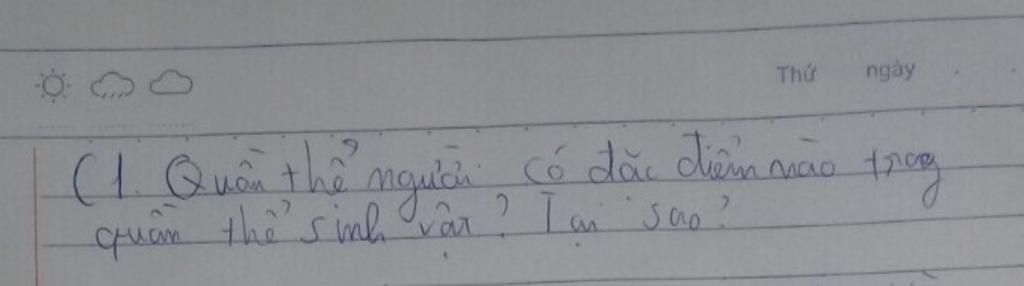 Thứ ngày
C1. Quần thể người có đặc điểm nào trong
quần thể sinh vật? Tại sao?